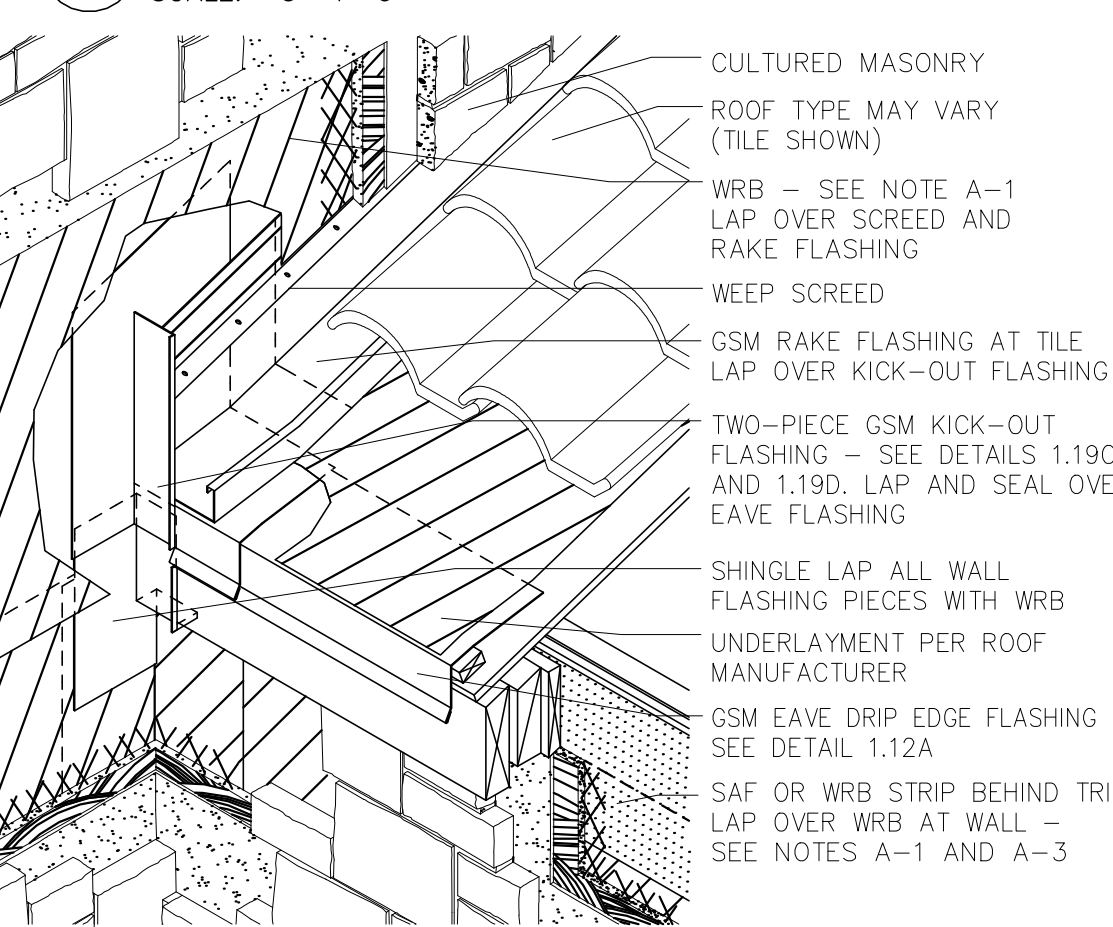 CULTURED MASONRY
ROOF TYPE MAY VARY
(TILE SHOWN)
WRB – SEE NOTE A–1
LAP OVER SCREED AND
RAKE FLASHING
WEEP SCREED
GSM RAKE FLASHING AT TILE
LAP OVER KICK–OUT FLASHING
TWO–PIECE GSM KICK–OUT
FLASHING – SEE DETAILS 1.19C
AND 1.19D. LAP AND SEAL OVE
EAVE FLASHING
SHINGLE LAP ALL WALL
FLASHING PIECES WITH WRB
UNDERLAYMENT PER ROOF
MANUFACTURER
GSM EAVE DRIP EDGE FLASHING
SEE DETAIL 1.12A
SAF OR WRB STRIP BEHIND TRI
LAP OVER WRB AT WALL –
SEE NOTES A–1 AND A–3